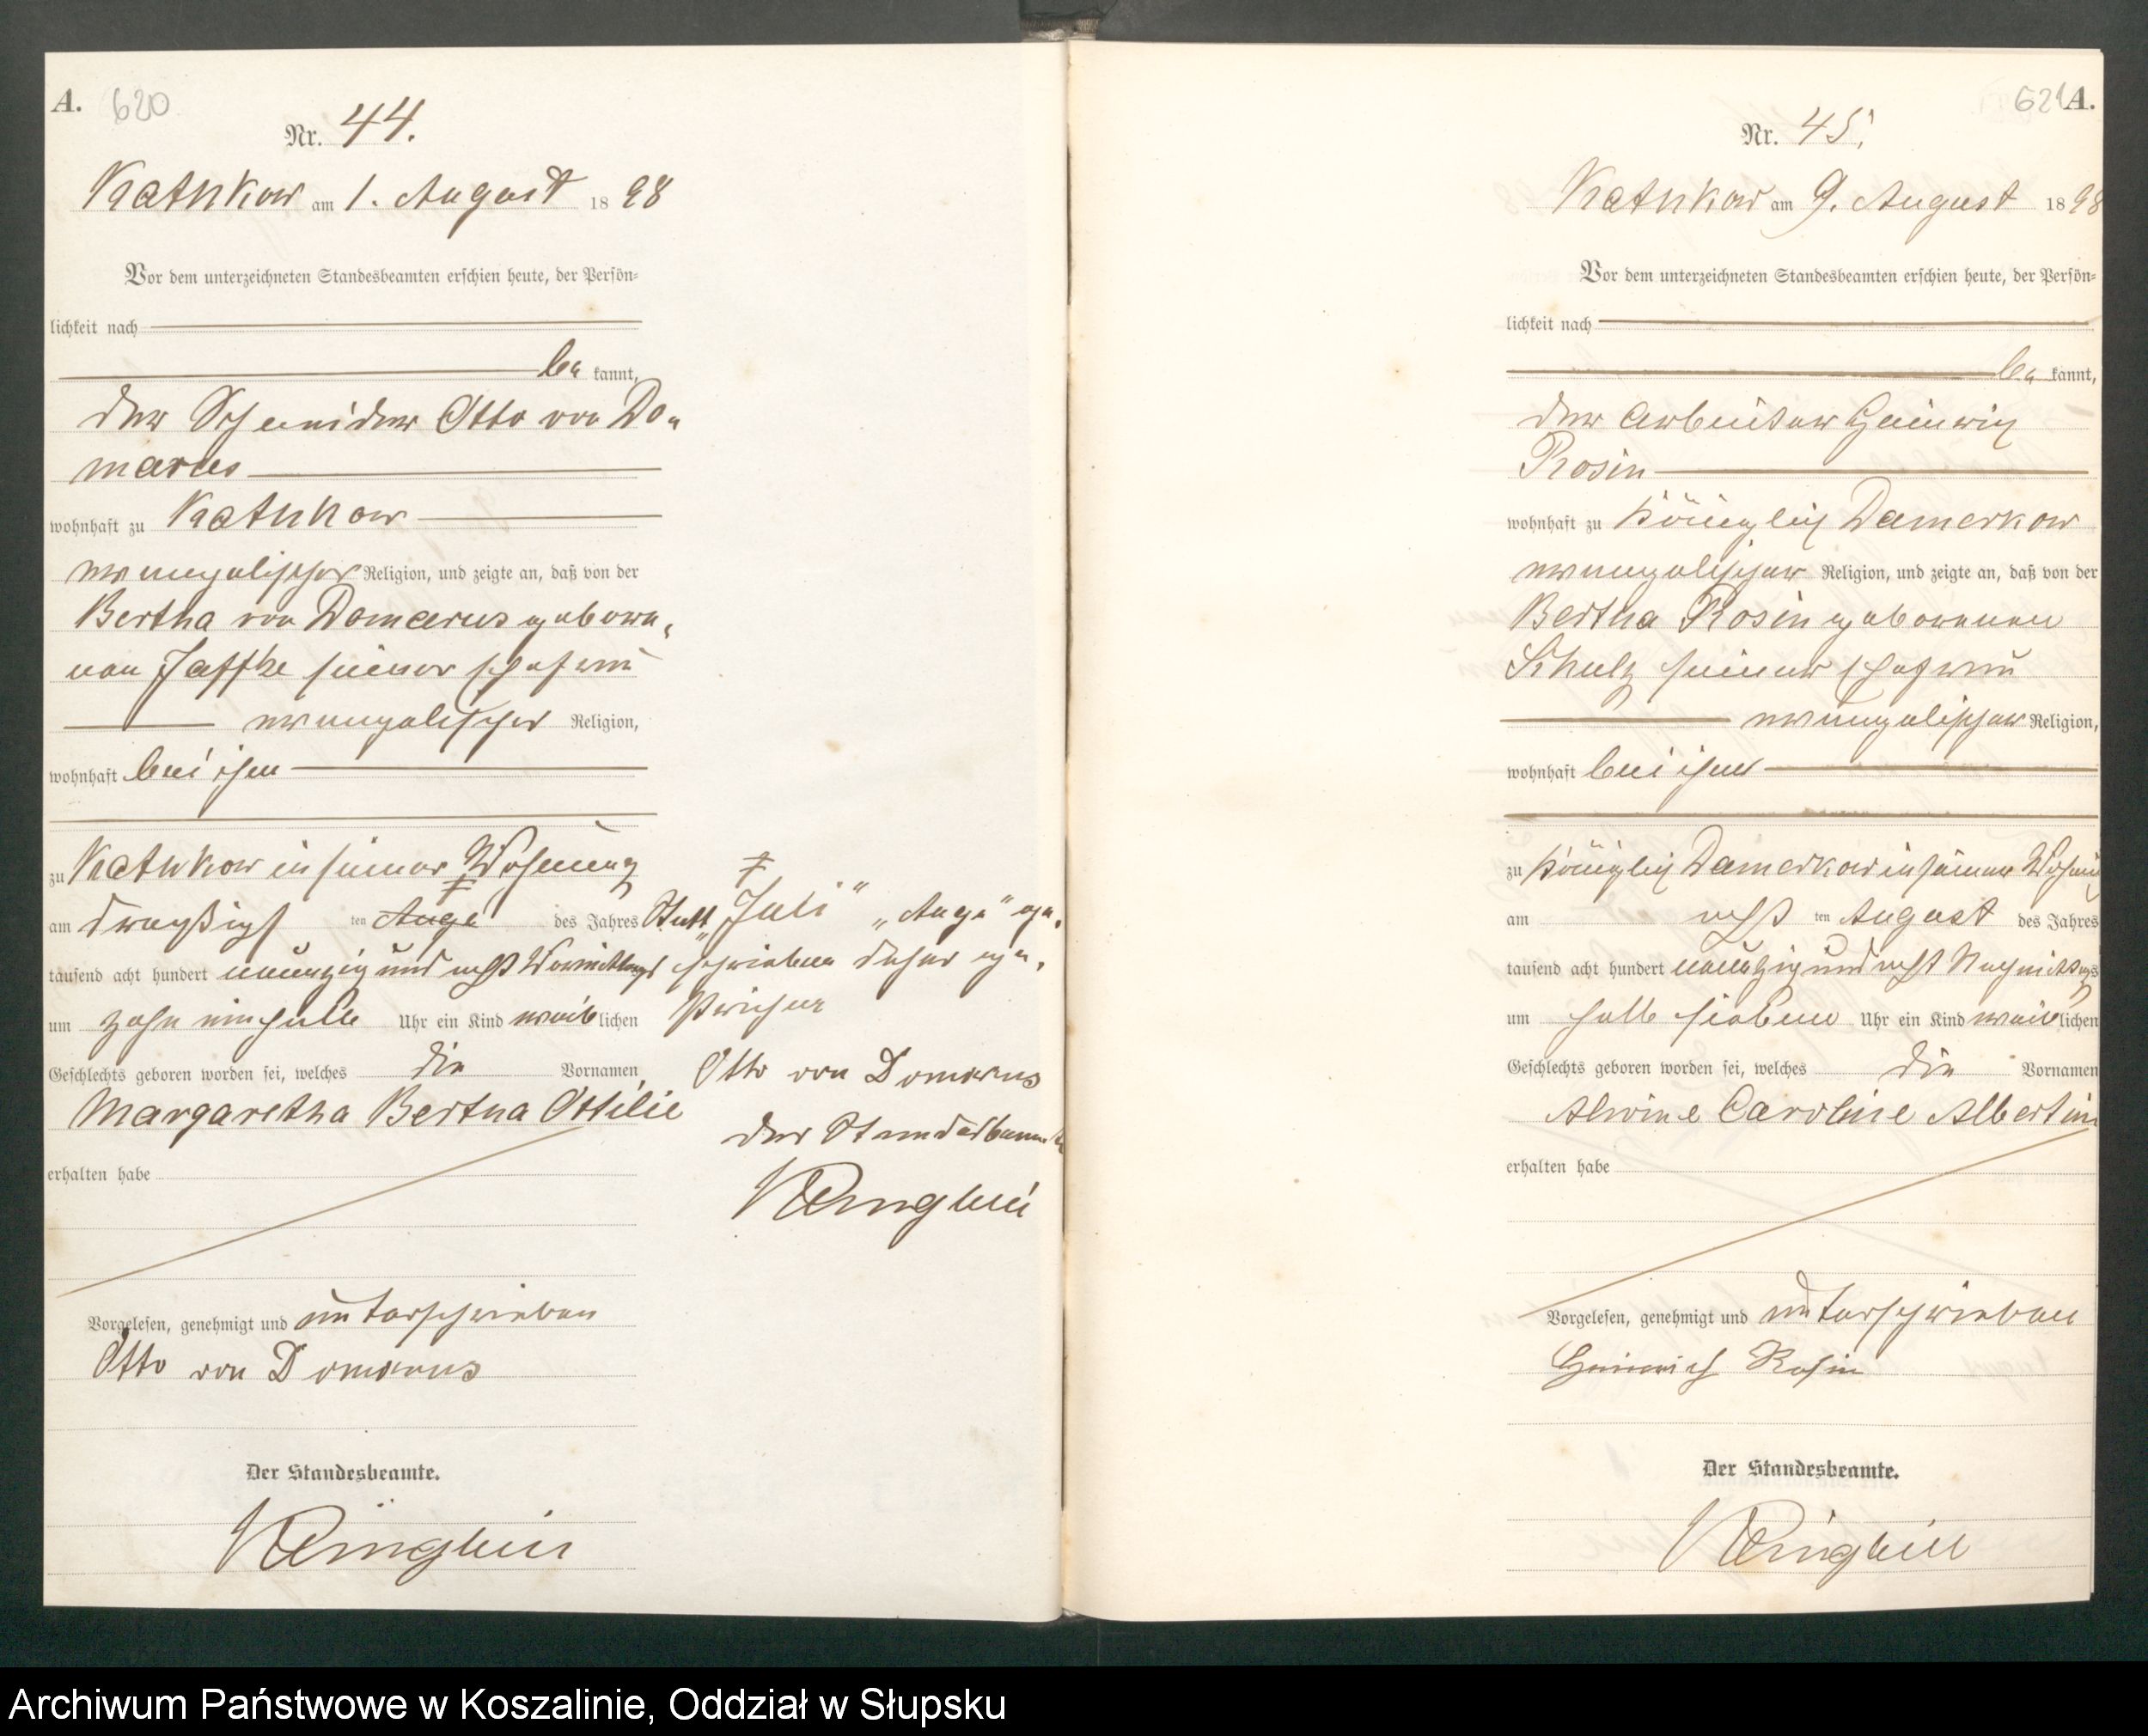 A. 620
Nr. 44.
Kathkow am 1. August 1898
Vor dem unterzeichneten Standesbeamten erschien heute, der Persön-
lichkeit nach
be kannt,
der Schneider Otto von Do-
marus
wohnhaft zu Kathkow
evangelischer Religion, und zeigte an, daß von der
Bertha von Domarus gebore-
nen Jaffke seiner Ehefrau
evangelischer Religion,
wohnhaft bei ihm
zu Kathkow in seiner Wohnung
am dreißigsten ten Auge des Jahres
tausend acht hundert neunzig und acht Vormittags
um zehn einhalb Uhr ein Kind weiblichen
Geschlechts geboren worden sei, welches die Vornamen
Margaretha Bertha Ottilie
erhalten habe
Vorgelesen, genehmigt und unterschrieben
Otto von Domarus
Der Standesbeamte.
Statt „Juli“ „Auge“ ge-
schrieben daher ge-
strichen
Otto von Domarus
Der Standesbeamte
621 A.
Nr. 45.
Kathkow am 9. August 1898
Vor dem unterzeichneten Standesbeamten erschien heute, der Persön-
lichkeit nach
be kannt,
der Arbeiter Heinrich
Rosin
wohnhaft zu Königlich Damerkow
evangelischer Religion, und zeigte an, daß von der
Bertha Rosin geborenen
Schulz seiner Ehefrau
evangelischer Religion,
wohnhaft bei ihm
zu Königlich Damerkow in seiner Wohnung
am acht ten August des Jahres
tausend acht hundert neunzig und acht Nachmittags
um halb sieben Uhr ein Kind weiblichen
Geschlechts geboren worden sei, welches die Vornamen
Alwine Caroline Albertine
erhalten habe
Vorgelesen, genehmigt und unterschrieben
Heinrich Rosin
Der Standesbeamte.
Archiwum Państwowe w Koszalinie, Oddział w Słupsku